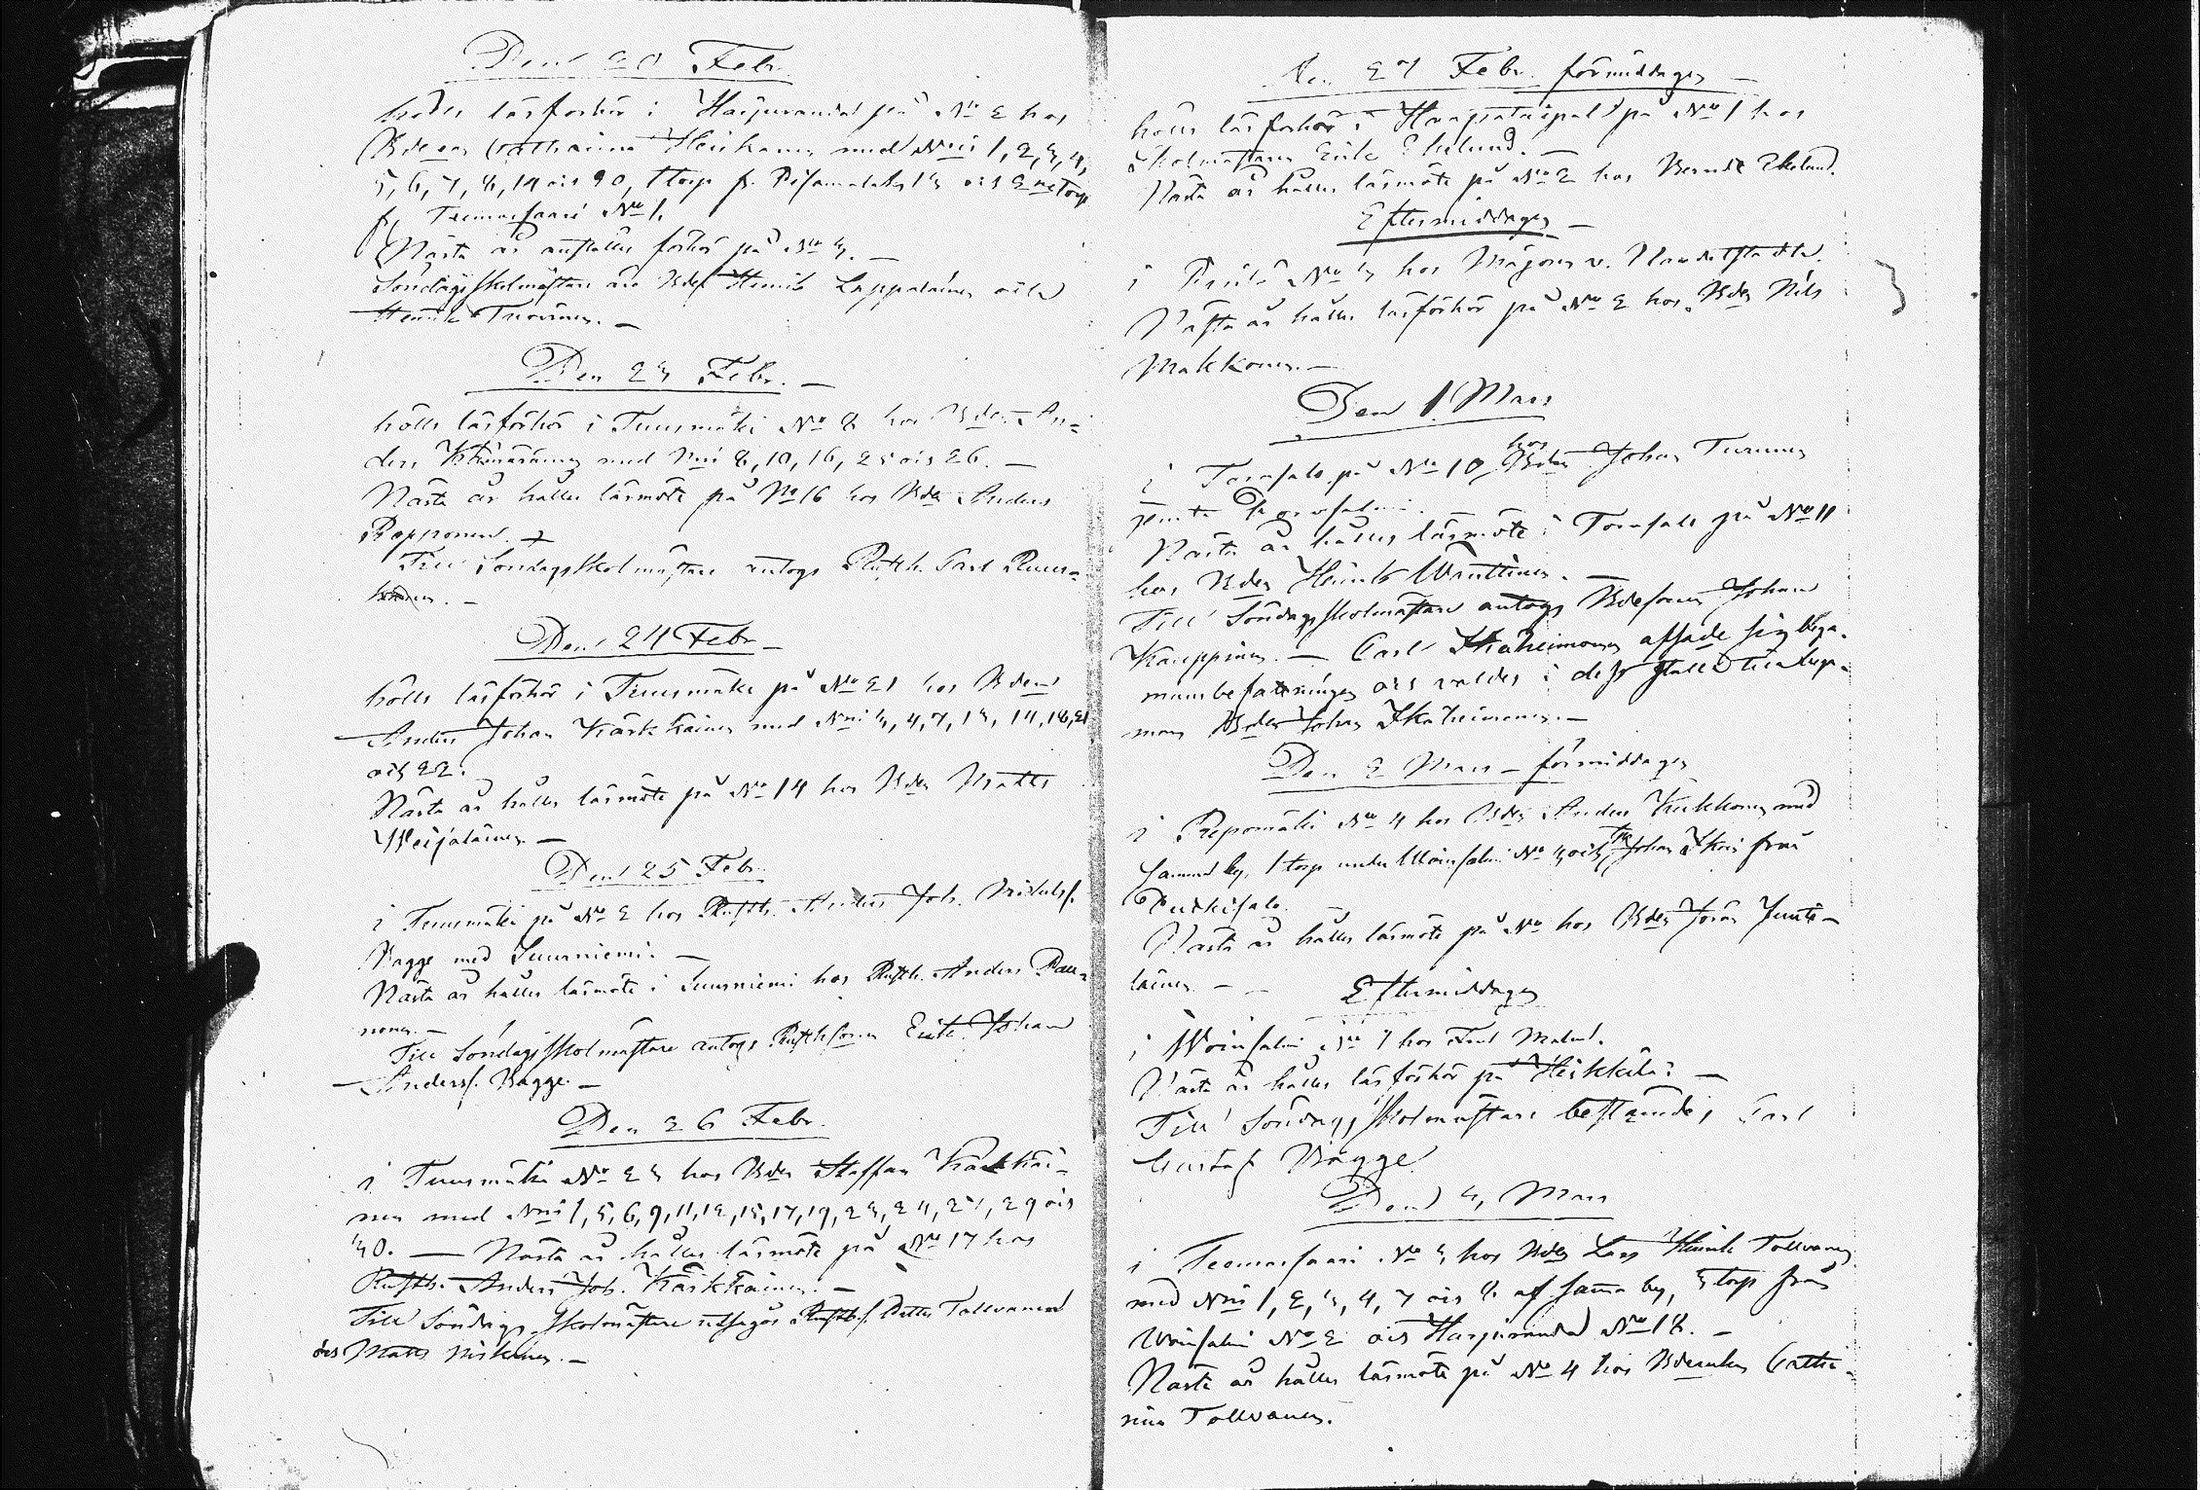 Den 20 Febr.
hölls läsförhör i Harjuranda på No 2 hos
Bdeenk. Catharina Heiskanen med Nris 1, 2, 3, 4,
5, 6, 7, 8, 19 och 20, 1 torp fr. No 13 och 2ne torp
fr. Teemassaari No 1.
Nästa år anställes förhör på No 3. —
Söndagsskolmästare äro Bden Henrik Lappalainen och
Henrik Tuovinen. —
Den 23 Febr. —
hölls läsförhör i Tuusmäki No 8 hos Bden An=
ders med Nris 8, 10, 16, 25 och 26. —
Nästa år hålles läsmöte på No 16 hos Bden Anders
Papponen.
Till Söndagsskolmästare antogs Rusth. Carl
Den 24 Febr. —
hölls läsförhör i Tuusmäki på No 21 hos Bden
Anders Johan Kärkkäinen med Nris 3, 4, 7, 13, 14, 18, 21
och 22.
Nästa år hålles läsmöte på No 14 hos Bden Matts
Weijalainen. —
Den 25 Febr.
i Tuusmäki på No 2 hos Rusth. Anders Joh.
Bagge med Suurniemi. —
Nästa år hålles läsmöte i Suurniemi hos Rusth. Anders Pau=
nonen. —
Till Söndagsskolmästare antogs Rusthsonen Erik Johan
Andersf. Bagge. —
Den 26 Febr.
i Tuusmäki No 23 hos Bden Staffan Kärkkäi=
nen med Nris 1, 5, 6, 9, 11, 12, 15, 17, 19, 23, 24, 27, 29 och
30. — Nästa år hålles läsmöte på No 17 hos
Rusth. Anders Joh. Kärkkäinen. —
Till Söndagsskolmästare utsågos Rusths. Petter Tallvanen
och Matts Miskinen. —
Den 27 Febr. förmiddagen —
hölls läsförhör i på No 1 hos
Skolmästaren Erik Ekelund. —
Nästa år hålles läsmöte på No 2 hos Berndt Ekelund.
Eftermiddagen —
i No 3 hos Majoren v.
Nästa år hålles läsförhör på No 2 hos Bden Nils
Makkonen. —
Den 1 Mars
i Torasalo på No 10 hos Bden Johan Turunen
jemte
Nästa år hålles läsmöte i Torasalo på No 11
hos Bden Henrik Wänttinen. —
Till Söndagsskolmästare antogs Bdesonen Johan
Kauppinen. — Carl Ikäheimonen afsade sig byga=
mansbefattningen och valdes i dess ställe till byga=
man Bden Johan Ikäheimonen. —
Den 2 Mars — förmiddagen
i Repomäki No 4 hos Bden Anders Kukkonen med
samma by, 1 torp under Woinsalmi No 3 och Johan från
Putkisalo.
Nästa år hålles läsmöte på No hos Bden Jöran Junti=
lainen — —
Eftermiddagen
i Woinsalmi No 7 hos
Nästa år hålles läsförhör på Heikkilä. —
Till Söndagsskolmästare bestämdes Carl
Gustaf Bagge
Den 3 Mars
i Teemassaari No 3 hos Bden Lars Henrik Tallvanen
med Nris 1, 2, 3, 4, 7 och 8 af samma by, 3 torp från
Woinsalmi No 2 och Harjuranda No 18. —
Nästa år hålles läsmöte på No 4 hos Bdeenkan Catha=
rina Tollvanen.